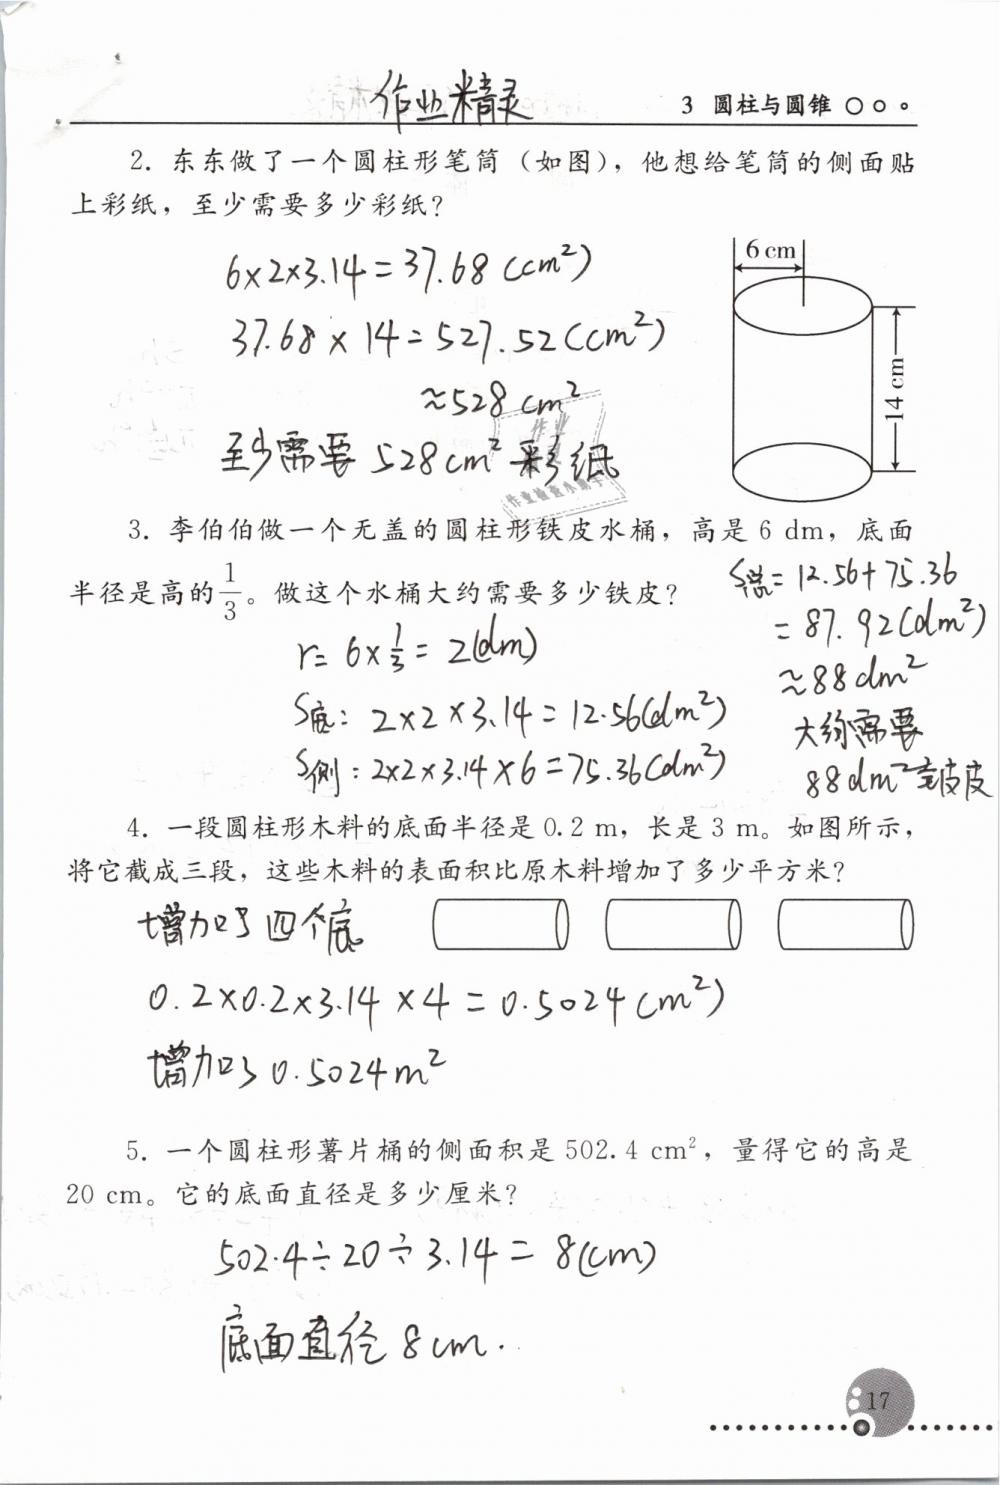 作业精灵
3 圆柱与圆锥
2. 东东做了一个圆柱形笔筒（如图），他想给笔筒的侧面贴
上彩纸，至少需要多少彩纸？
6 cm
14 cm
6×2×3.14=37.68 (cm²)
37.68×14=527.52(cm²)
≈528 cm²
至少需要 528cm² 彩纸
作业
作业检查小助手
3. 李伯伯做一个无盖的圆柱形铁皮水桶，高是 6 dm，底面
半径是高的1/3。做这个水桶大约需要多少铁皮？
r= 6×1/3= 2(dm)
S底: 2×2×3.14=12.56(dm²)
S侧: 2×2×3.14×6=75.36(dm²)
=12.56+75.36
=87.92(dm²)
≈88dm²
大约需要
88dm²铁皮
4. 一段圆柱形木料的底面半径是 0.2 m，长是 3 m。如图所示，
将它截成三段，这些木料的表面积比原木料增加了多少平方米？
增加了四个底
0.2×0.2×3.14×4=0.5024(m²)
增加了0.5024m²
5. 一个圆柱形薯片桶的侧面积是 502.4 cm²，量得它的高是
20 cm。它的底面直径是多少厘米？
502.4÷20÷3.14=8(cm)
底面直径 8cm.
17